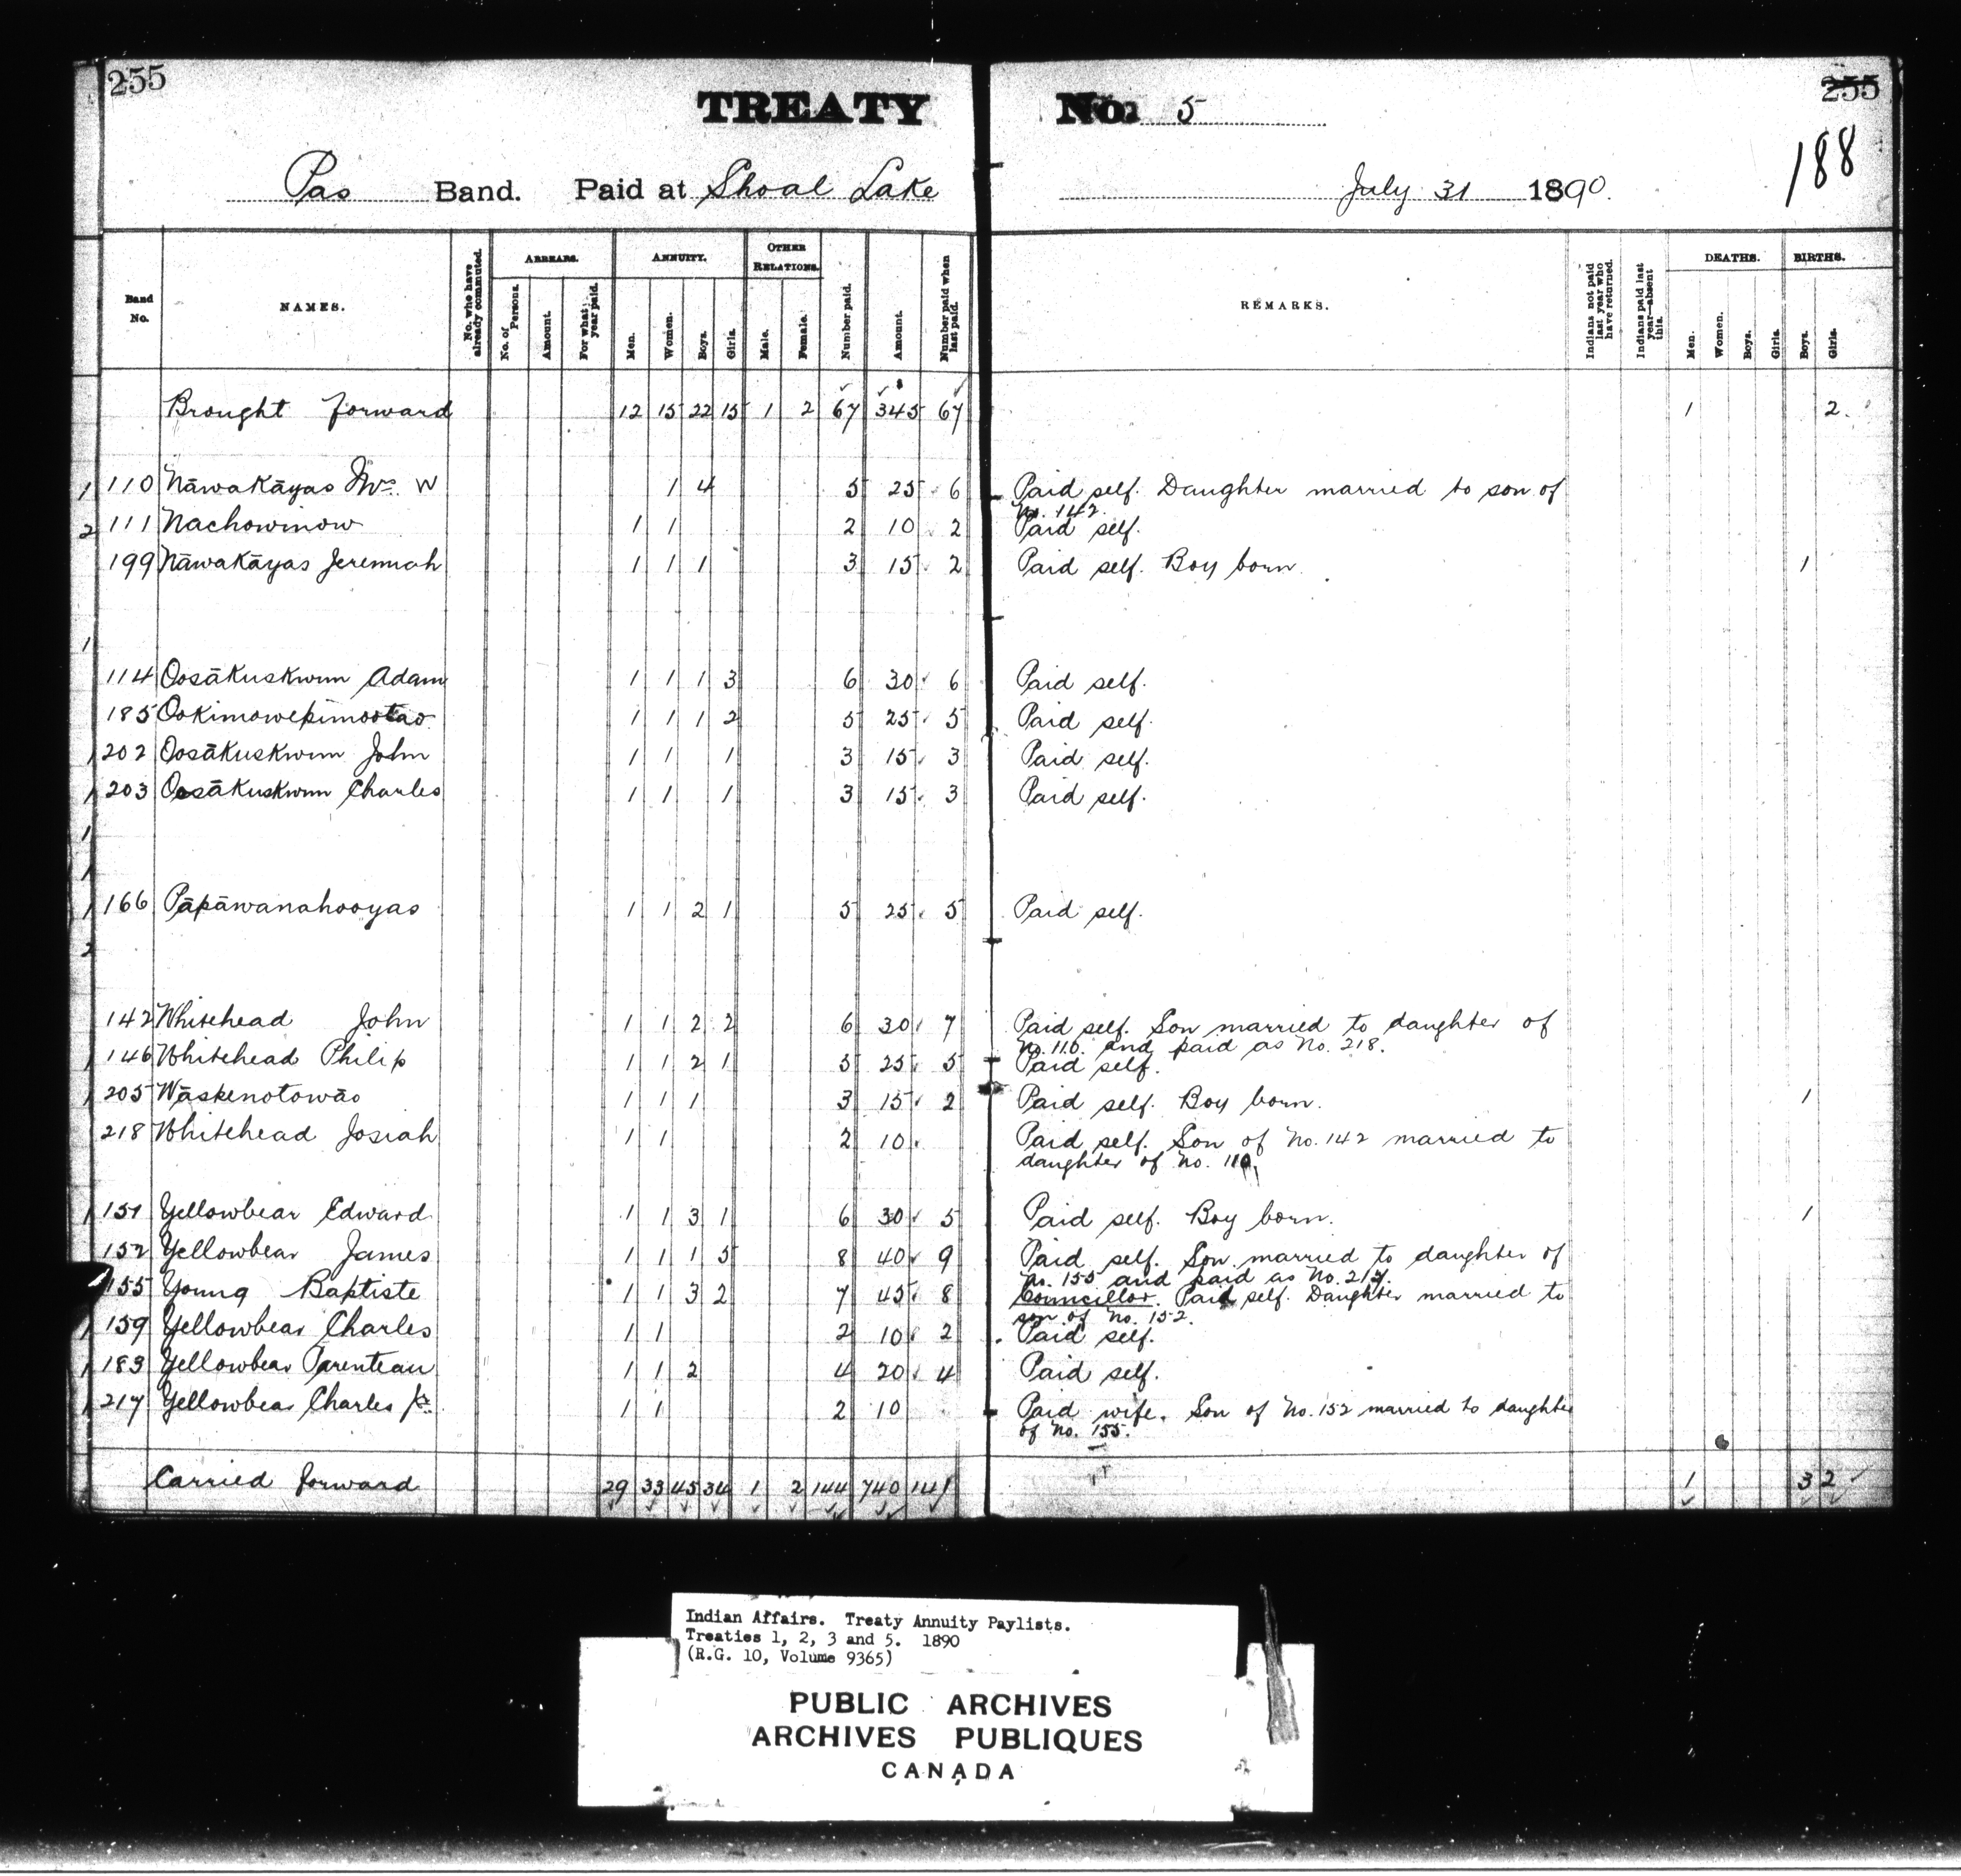 255
TREATY No. 5
255
188
Pas Band. Paid at Shoal Lake July 31 1890.
Band No. NAMES. No. who have already commuted. ARREARS. No. of Persons. Amount. For what year paid. ANNUITY. Men. Women. Boys. Girls. OTHER RELATIONS. Male. Female. Number paid. Amount. Number paid when last paid. REMARKS. Indians not paid last year who have returned. Indians paid last year—absent this. DEATHS. Men. Women. Boys. Girls. BIRTHS. Boys. Girls.
Brought forward 12 15 22 15 1 2 67 345 67 1 2.
1 110 Nāwakāyas Mrs. W 1 4 5 25 6 Paid self. Daughter married to son of
No. 142.
2 111 Nachowinow 1 1 2 10 2 Paid self.
199 Nāwakāyas Jeremiah 1 1 1 3 15 2 Paid self. Boy born. 1
1
114 Oosākuskwun Adam 1 1 1 3 6 30 6 Paid self.
185 Ookimowepimootao 1 1 1 2 5 25 5 Paid self.
1 202 Oosākuskwun John 1 1 1 3 15 3 Paid self.
1 203 Oosākuskwun Charles 1 1 1 3 15 3 Paid self.
1
1
1 166 Pāpāwanahooyas 1 1 2 1 5 25 5 Paid self.
2
142 Whitehead John 1 1 2 2 6 30 7 Paid self. Son married to daughter of
No. 110. and paid as No. 218.
1 146 Whitehead Philip 1 1 2 1 5 25 5 Paid self.
1 205 Wāskenotowāo 1 1 1 3 15 2 Paid self. Boy born. 1
218 Whitehead Josiah 1 1 2 10 Paid self. Son of No. 142 married to
daughter of No. 110.
1 151 Yellowbear Edward 1 1 3 1 6 30 5 Paid self. Boy born. 1
152 Yellowbear James 1 1 1 5 8 40 9 Paid self. Son married to daughter of
No. 155 and paid as No. 217.
155 Young Baptiste 1 1 3 2 7 45 8 Councillor. Paid self. Daughter married to
son of No. 152.
1 159 Yellowbear Charles 1 1 2 10 2 Paid self.
1 183 Yellowbear Parenteau 1 1 2 4 20 4 Paid self.
1 217 Yellowbear Charles Jr. 1 1 2 10 Paid wife. Son of No. 152 married to daughter
of No. 155.
Carried forward 29 33 45 34 1 2 144 740 141 1 3 2
Indian Affairs. Treaty Annuity Paylists.
Treaties 1, 2, 3 and 5. 1890
(R.G. 10, Volume 9365)
PUBLIC ARCHIVES
ARCHIVES PUBLIQUES
CANADA